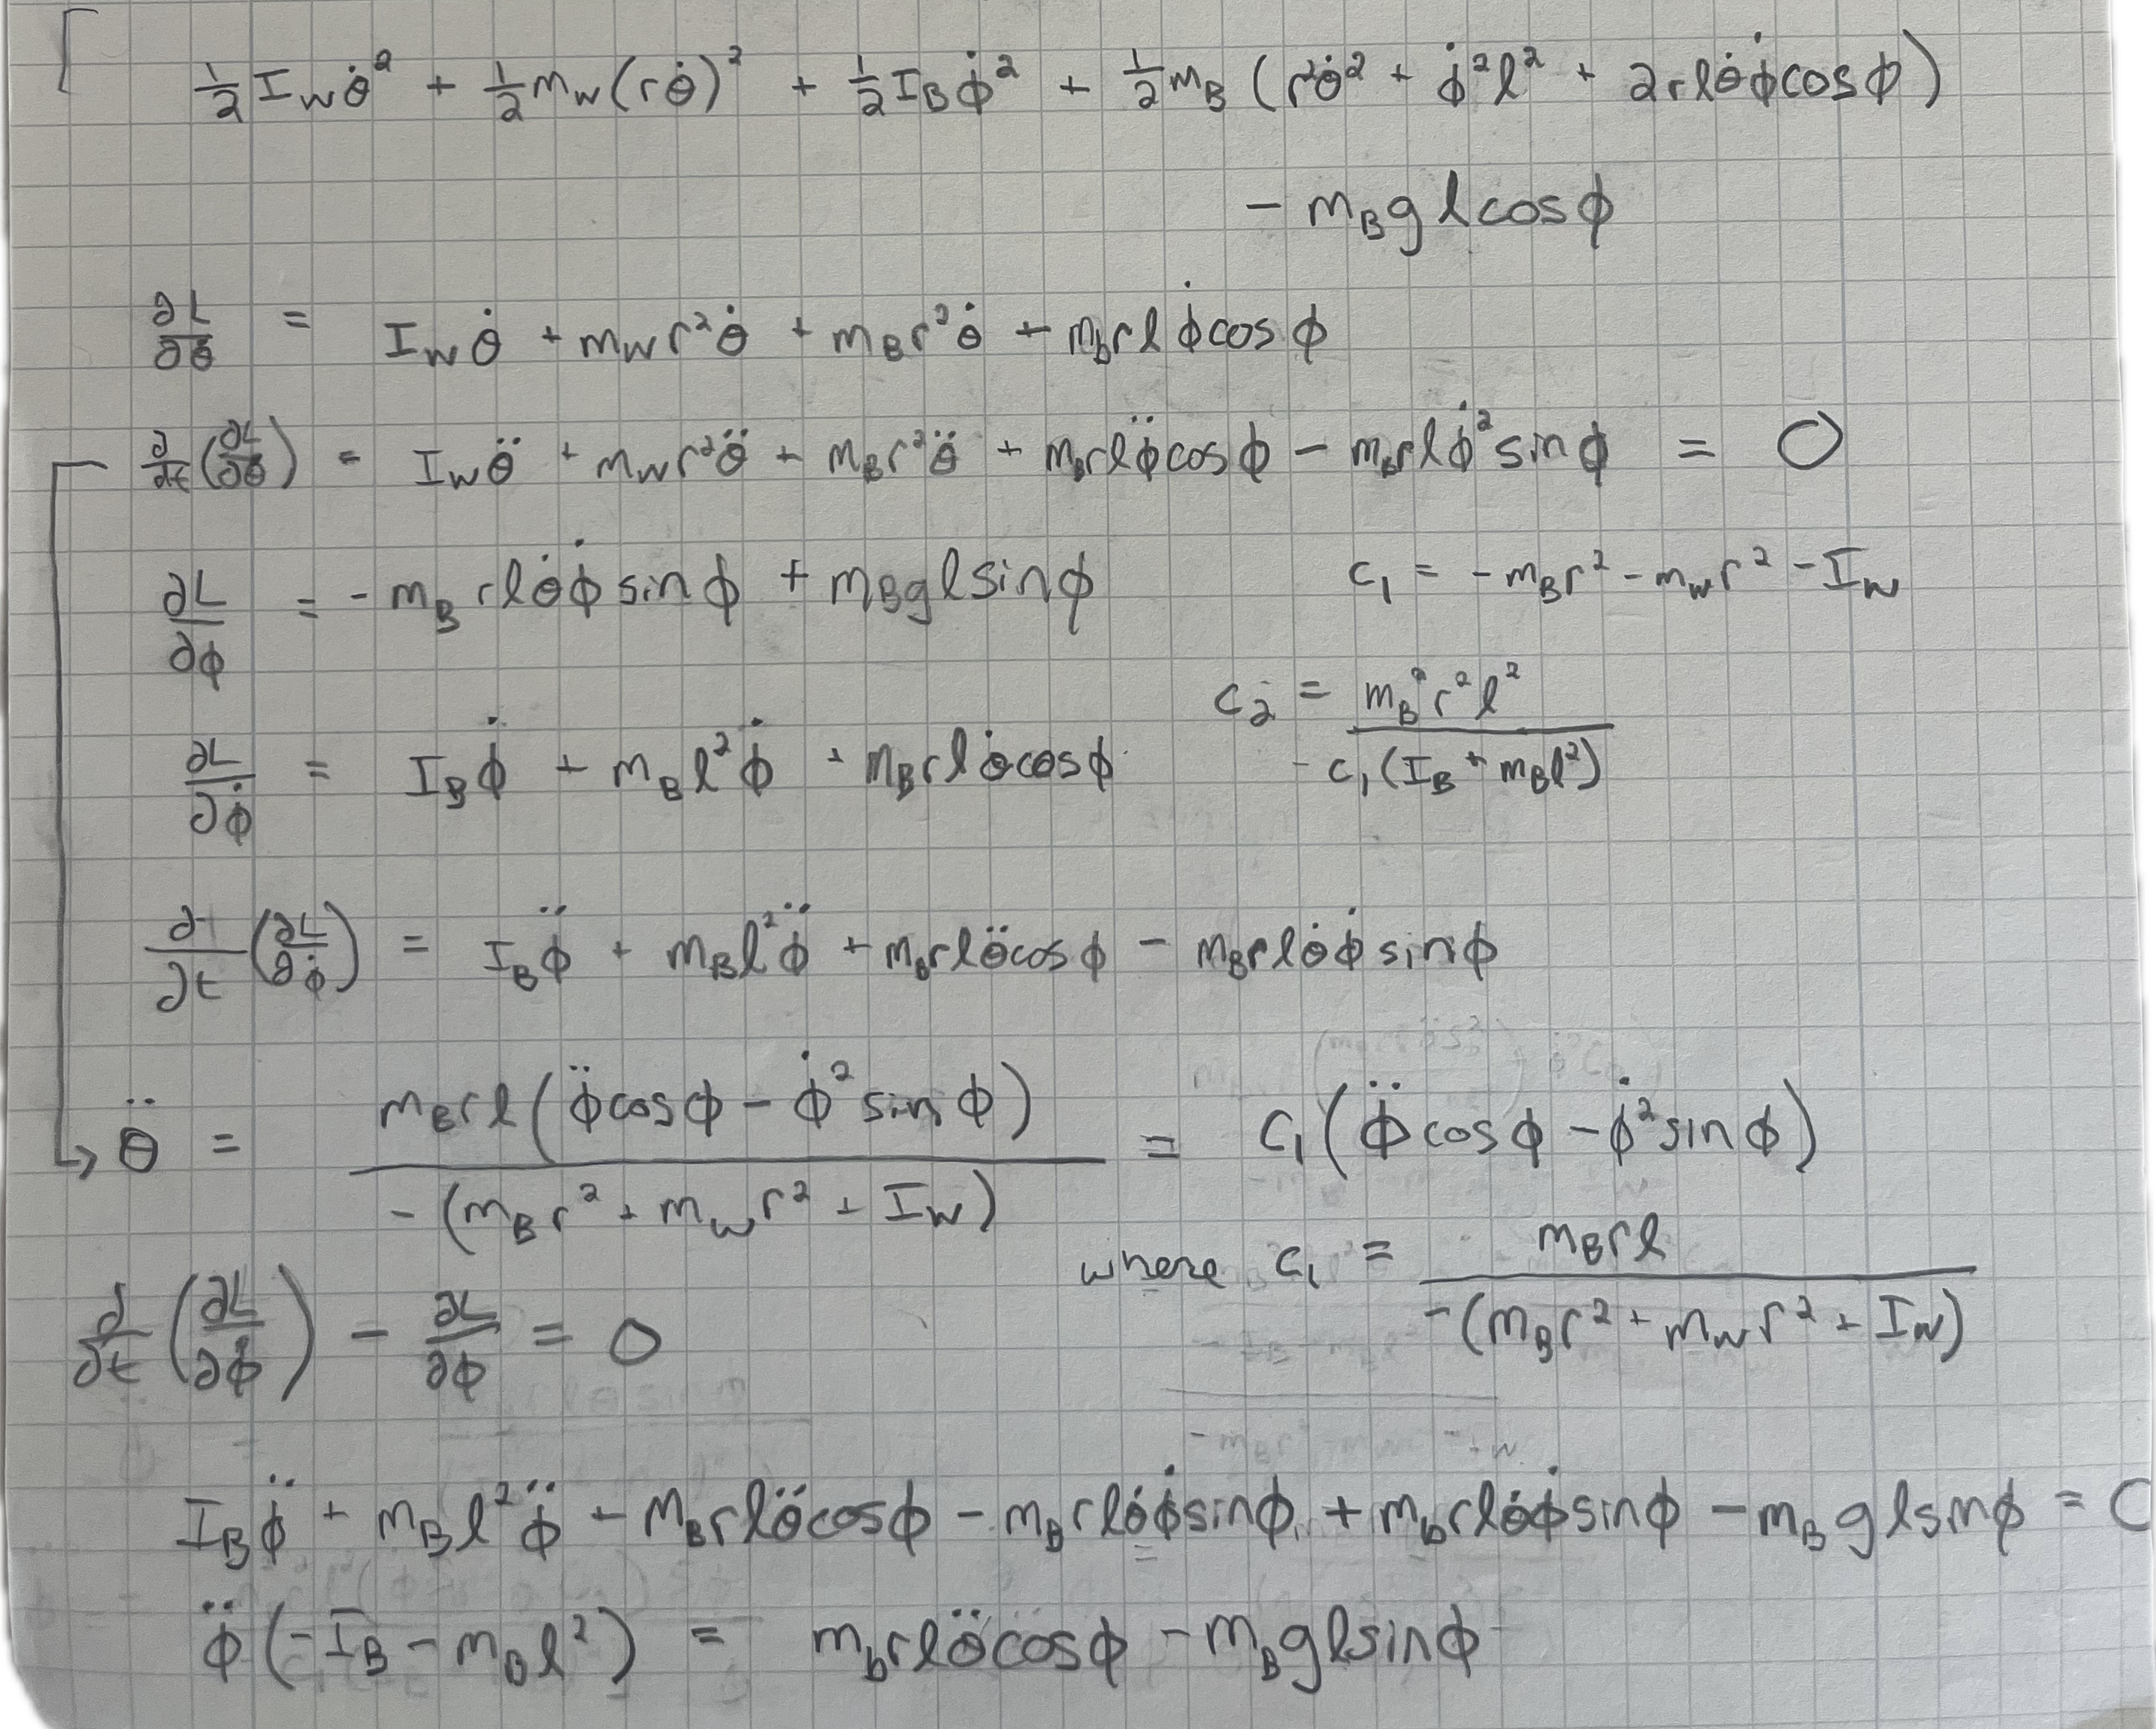 ½ I_W θ̇² + ½ m_W (rθ̇)² + ½ I_B ϕ̇² + ½ m_B (r²θ̇² + ϕ̇²l² + 2rlθ̇ϕ̇cosϕ)
− m_B g l cosϕ
∂L/∂θ̇ = I_W θ̇ + m_W r² θ̇ + m_B r² θ̇ + m_b r l ϕ̇ cos ϕ
∂/∂t (∂L/∂θ̇) = I_W θ̈ + m_W r² θ̈ + m_B r² θ̈ + m_B r l ϕ̈ cos ϕ − m_B r l ϕ̇² sin ϕ = 0
∂L/∂ϕ = − m_B r l θ̇ ϕ̇ sin ϕ + m_B g l sin ϕ
c₁ = −m_B r² − m_W r² − I_W
c₂ = m_B² r² l² / −c₁(I_B + m_B l²)
∂L/∂ϕ̇ = I_B ϕ̇ + m_B l² ϕ̇ + m_B r l θ̇ cos ϕ
∂/∂t (∂L/∂ϕ̇) = I_B ϕ̈ + m_B l² ϕ̈ + m_B r l θ̈ cos ϕ − m_B r l θ̇ ϕ̇ sin ϕ
θ̈ = m_B r l (ϕ̈ cos ϕ − ϕ̇² sin ϕ) / −(m_B r² + m_W r² + I_W) = C₁(ϕ̈ cos ϕ − ϕ̇² sin ϕ)
where c₁ = m_B r l / −(m_B r² + m_W r² + I_W)
∂/∂t (∂L/∂ϕ̇) − ∂L/∂ϕ = 0
I_B ϕ̈ + m_B l² ϕ̈ + m_B r l θ̈ cos ϕ − m_B r l θ̇ ϕ̇ sin ϕ + m_b r l θ̇ ϕ̇ sin ϕ − m_B g l sin ϕ = 0
ϕ̈ (−I_B − m_B l²) = m_b r l θ̈ cos ϕ − m_B g l sin ϕ